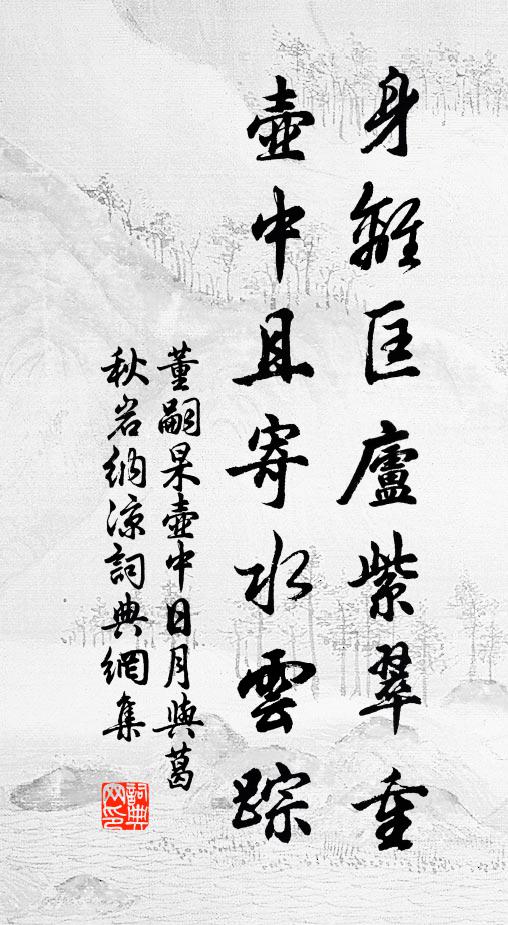 身離匡廬紫翠重
壺中且寄水雲踪
董嗣杲壺中日月與葛
秋岩納凉詞典網集
詞典
网印